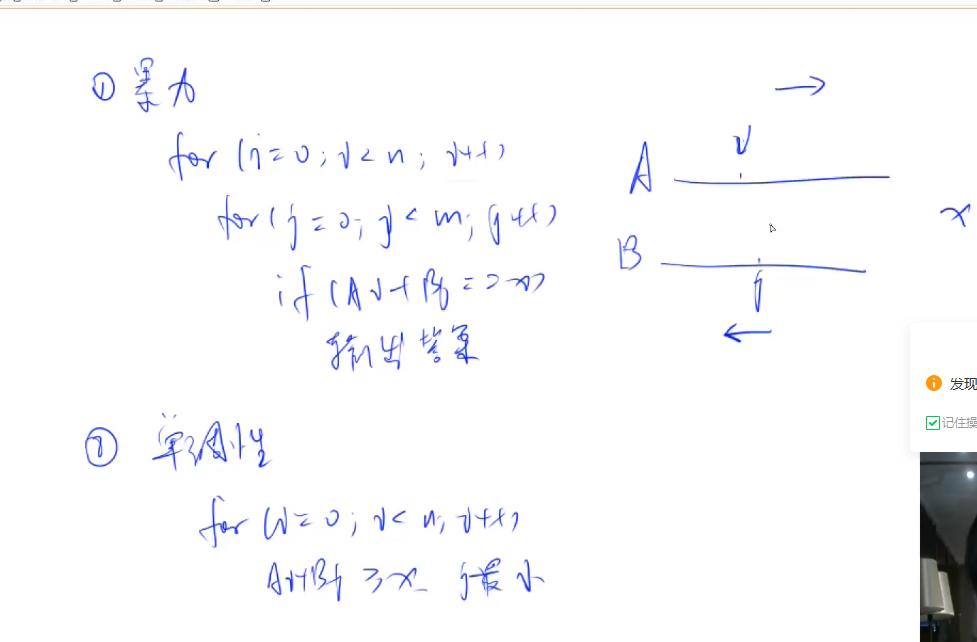 ① 暴力
for (i=0; i<n; i++)
for (j=0; j<m; j++)
if (Ai+Bj==x)
输出答案
② 单调性
for (i=0; i<n; i++)
Ai+Bj ≥x j最小
→
i
A
x
B
j
←
发现
记住操